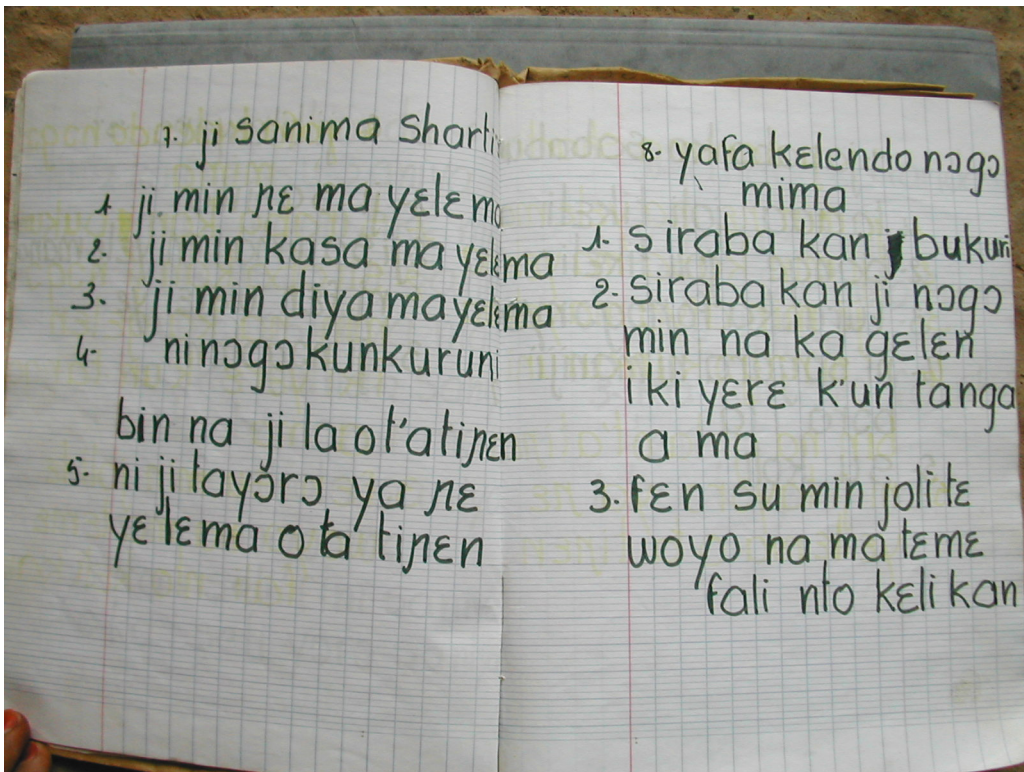 7. ji sanima sharti
1 ji min ɲɛ ma yɛlɛma
2. ji min kasa ma yɛlɛma
3. ji min diya mayɛlɛma
4- ni nɔgɔ kunkuruni
bin na ji la ot'atiɲɛn
5- ni ji tayɔrɔ ya ɲɛ
yɛlɛma o ta tiɲɛn
8- yafa kɛlendo nɔgɔ
mima
1- siraba kan bukuri
2- siraba kan ji nɔgɔ
min na ka gɛlɛn
i ki yɛrɛ k'un tanga
a ma
3. fɛn su min joli tɛ
woyo na ma tɛmɛ
fali nto kɛli kan